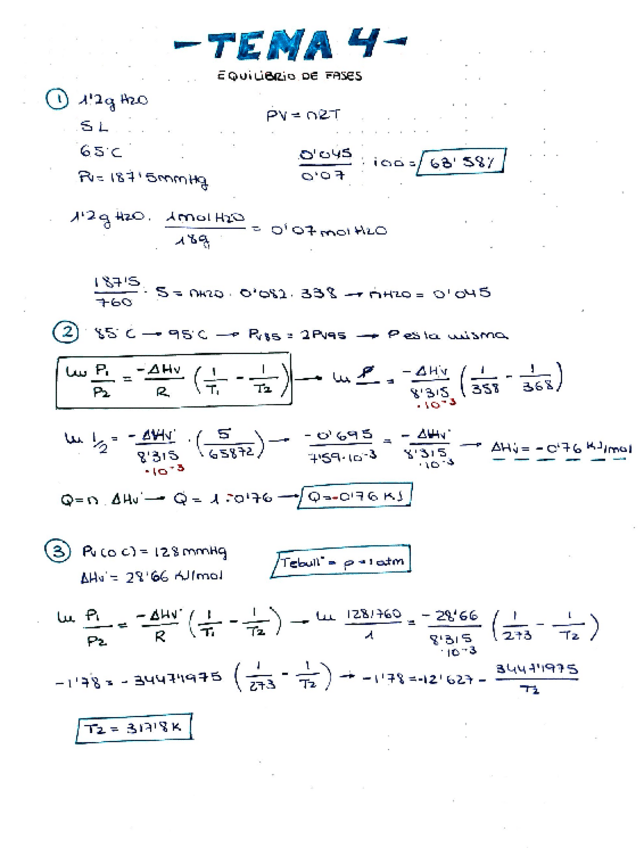 - TEMA 4 -
EQUILIBRIO DE FASES
① 1'2g H2O
5L
65ºC
Pv = 187'5mmHg
PV = nRT
0'045/0'07 · 100 = 63'58%
1'2g H2O · 1mol H2O/18g = 0'07 mol H2O
187'5/760 · 5 = nH2O · 0'082 · 338 → nH2O = 0'045
② 85ºC → 95ºC → Pv85 = 2Pv95 → P es la misma
ln P1/P2 = -ΔHv/R (1/T1 - 1/T2) → ln P = -ΔHv/8'315·10-3 (1/358 - 1/368)
ln 1/2 = -ΔHv/8'315·10-3 · (5/65872) → -0'695/7'59·10-3 = -ΔHv/8'315·10-3 → ΔHv = -0'76 KJ/mol
Q = n · ΔHv → Q = 1·-0'76 → Q = -0'76 KJ
③ Pv (0ºC) = 128mmHg
ΔHvº = 28'66 KJ/mol
Tebullº = p = 1 atm
ln P1/P2 = -ΔHvº/R (1/T1 - 1/T2) → ln 128/760/1 = -28'66/8'315·10-3 (1/273 - 1/T2)
-1'78 = -3447'1975 (1/273 - 1/T2) → -1'78 = -12'627 - 3447'1975/T2
T2 = 317'8K